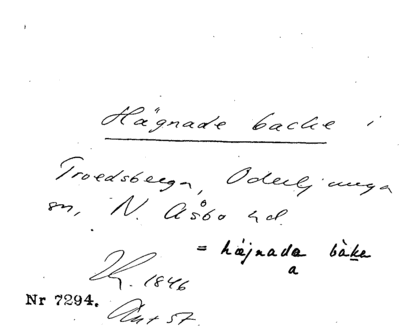 Hägnade backe i
Troedsberga, Oderljunga
sn, N. Åsbo hd.
= håjnada bàka
a
1846
Nr 7294.